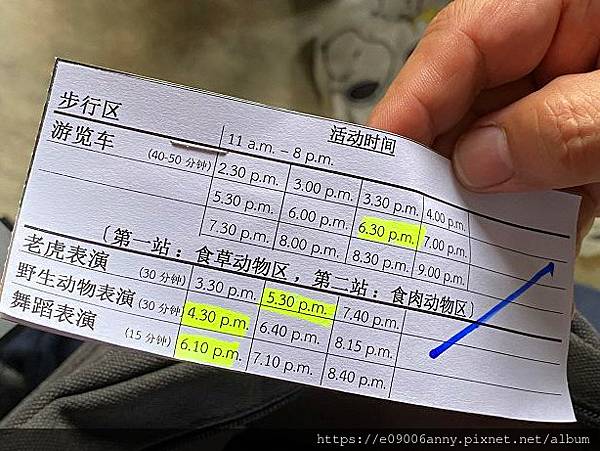 活动时间
步行区 11 a.m. – 8 p.m.
游览车 (40-50 分钟) 2.30 p.m. 3.00 p.m. 3.30 p.m. 4.00 p.m.
5.30 p.m. 6.00 p.m. 6.30 p.m. 7.00 p.m.
7.30 p.m. 8.00 p.m. 8.30 p.m. 9.00 p.m.
〔第一站：食草动物区，第二站：食肉动物区〕
老虎表演 (30 分钟) 3.30 p.m. 5.30 p.m. 7.40 p.m.
野生动物表演 (30 分钟) 4.30 p.m. 6.40 p.m. 8.15 p.m.
舞蹈表演 (15 分钟) 6.10 p.m. 7.10 p.m. 8.40 p.m.
https://e09006anny.pixnet.net/album